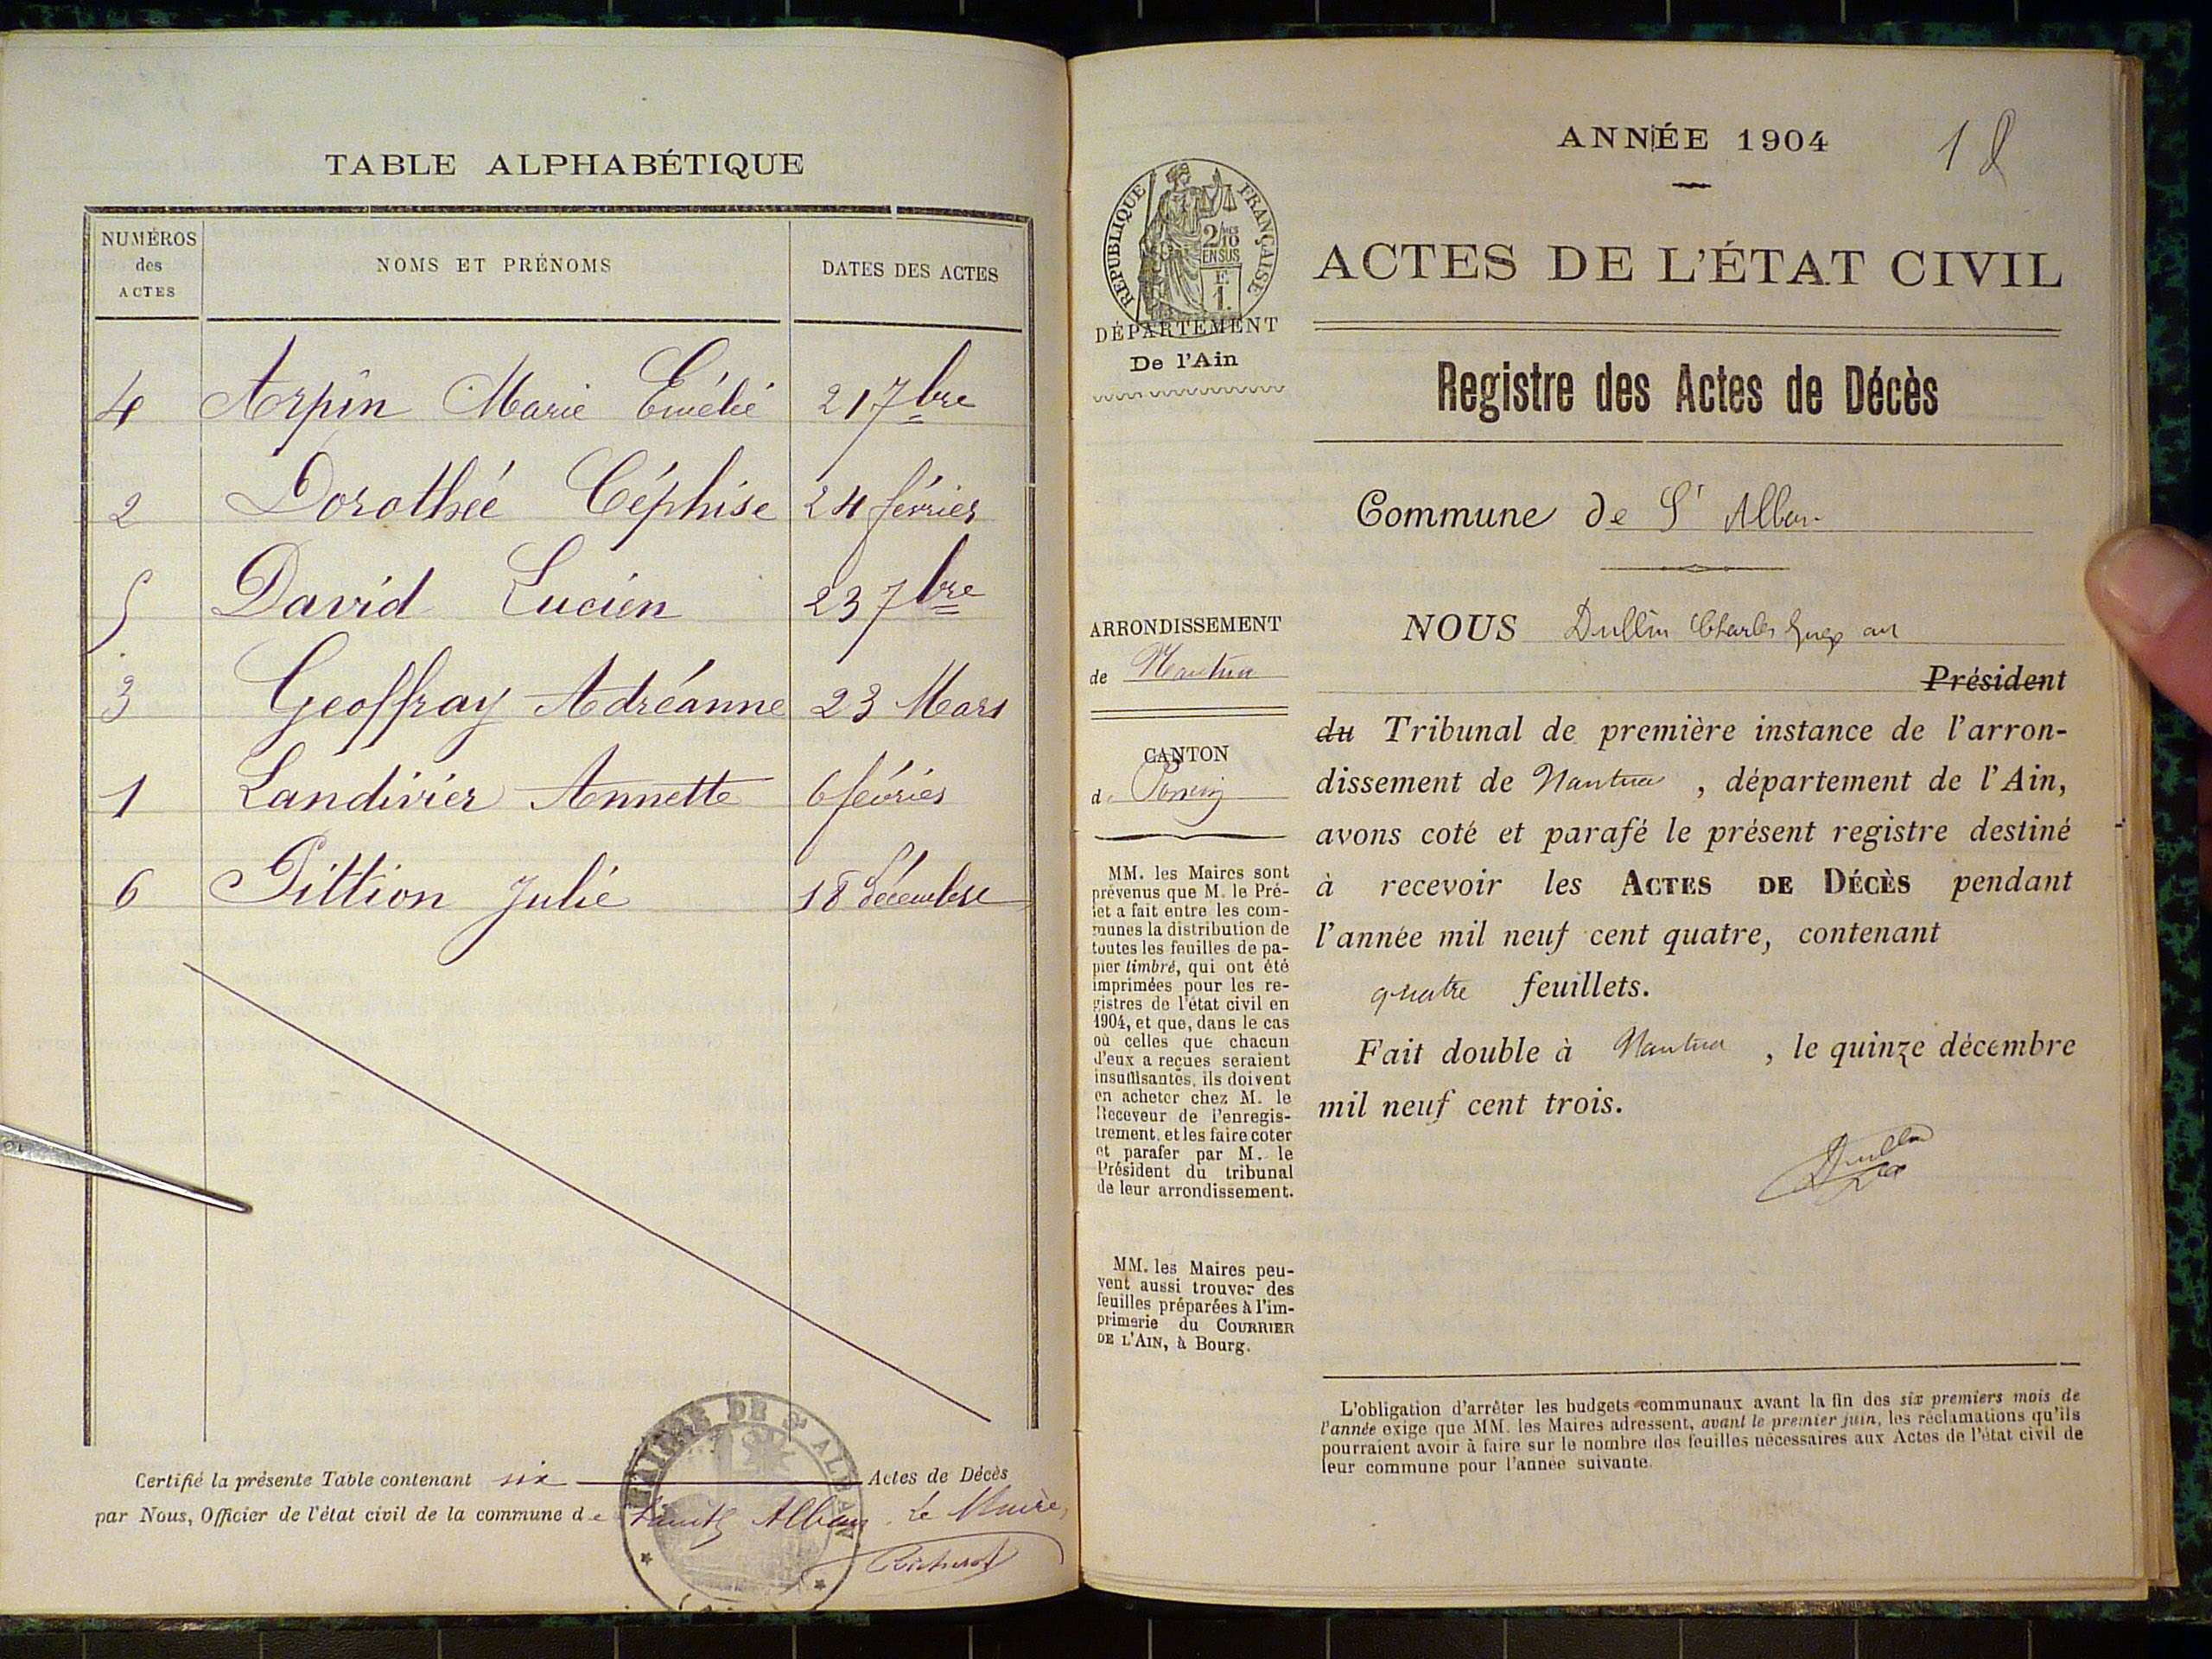 TABLE ALPHABÉTIQUE
NUMÉROS des ACTES NOMS ET PRÉNOMS DATES DES ACTES
4 Arpin Marie Émélie 21 7bre
2 Dorothée Céphise 24 février
5 David Lucien 23 7bre
3 Geoffray Adréanne 23 Mars
1 Landivier Annette 6 février
6 Pittion Julie 18 décembre
Certifié la présente Table contenant six Actes de Décès
par Nous, Officier de l'état civil de la commune de Saint Alban. Le Maire,
MAIRIE DE St ALBAN
ANNÉE 1904
1
RÉPUBLIQUE FRANÇAISE
2/10 EN SUS
1.
DÉPARTEMENT
De l'Ain
ARRONDISSEMENT
de Nantua
CANTON
d. Poncin
MM. les Maires sont
prévenus que M. le Pré-
fet a fait entre les com-
munes la distribution de
toutes les feuilles de pa-
pier timbré, qui ont été
imprimées pour les re-
gistres de l'état civil en
1904, et que, dans le cas
où celles que chacun
d'eux a reçues seraient
insuffisantes, ils doivent
en acheter chez M. le
Receveur de l'enregis-
trement, et les faire coter
et parafer par M. le
Président du tribunal
de leur arrondissement.
MM. les Maires peu-
vent aussi trouver des
feuilles préparées à l'im-
primerie du COURRIER
DE L'AIN, à Bourg.
ACTES DE L'ÉTAT CIVIL
Registre des Actes de Décès
Commune de St Alban
NOUS Dullin Charles Juge au
Président
du Tribunal de première instance de l'arron-
dissement de Nantua, département de l'Ain,
avons coté et parafé le présent registre destiné
à recevoir les ACTES DE DÉCÈS pendant
l'année mil neuf cent quatre, contenant
quatre feuillets.
Fait double à Nantua, le quinze décembre
mil neuf cent trois.
Dullin
L'obligation d'arrêter les budgets communaux avant la fin des six premiers mois de
l'année exige que MM. les Maires adressent, avant le premier juin, les réclamations qu'ils
pourraient avoir à faire sur le nombre des feuilles nécessaires aux Actes de l'état civil de
leur commune pour l'année suivante.